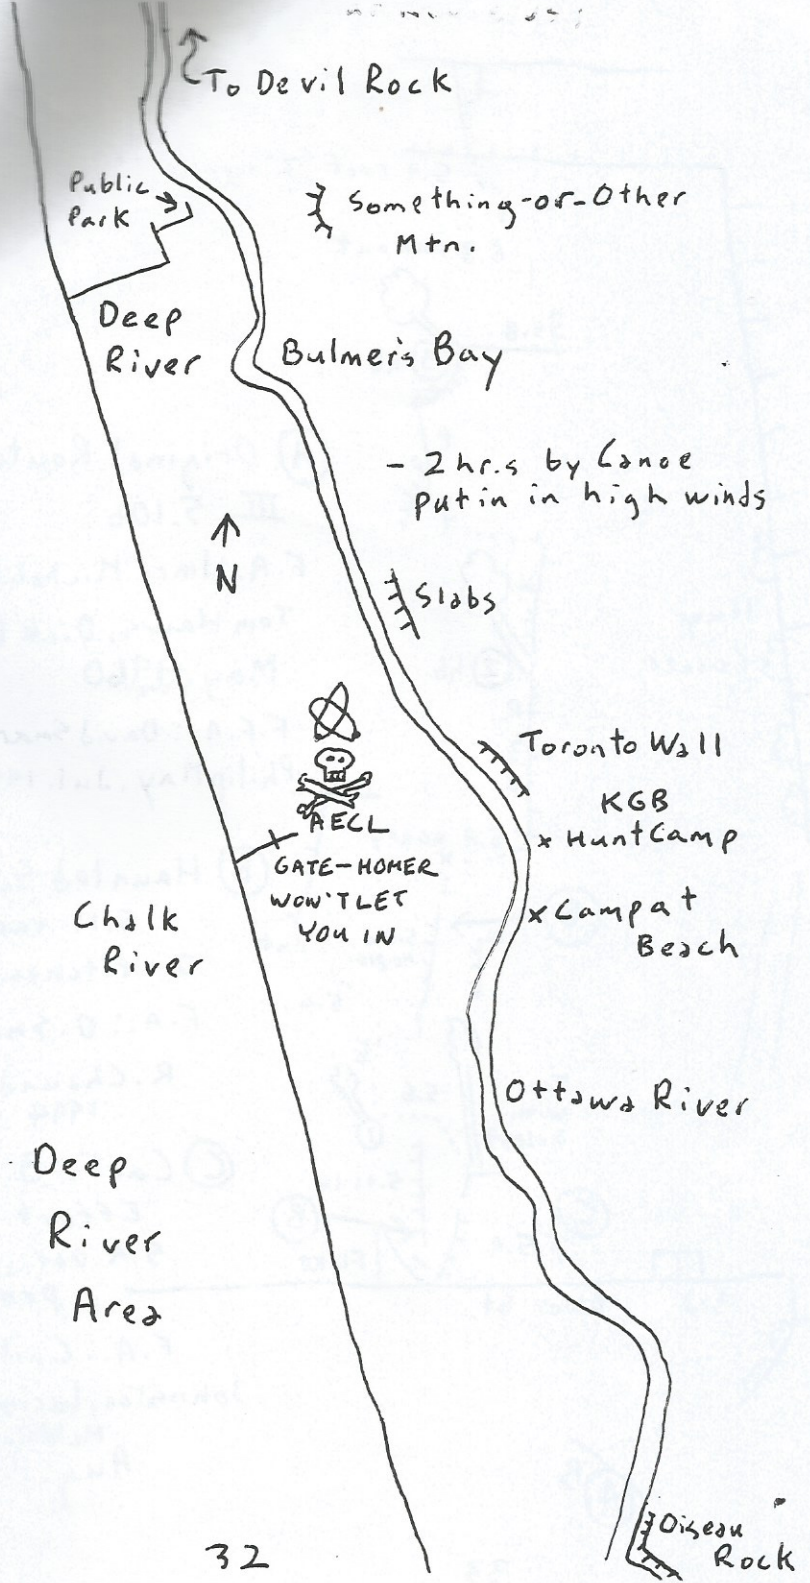 To Devil Rock
Public
Park
Something-or-Other
Mtn.
Deep
River
Bulmer's Bay
- 2 hr.s by Canoe
put in in high winds
N
Slabs
Toronto Wall
KGB
x Hunt Camp
AECL
GATE-HOMER
WON'T LET
YOU IN
x Camp at
Beach
Chalk
River
Ottawa River
Deep
River
Area
Oiseau
Rock
32